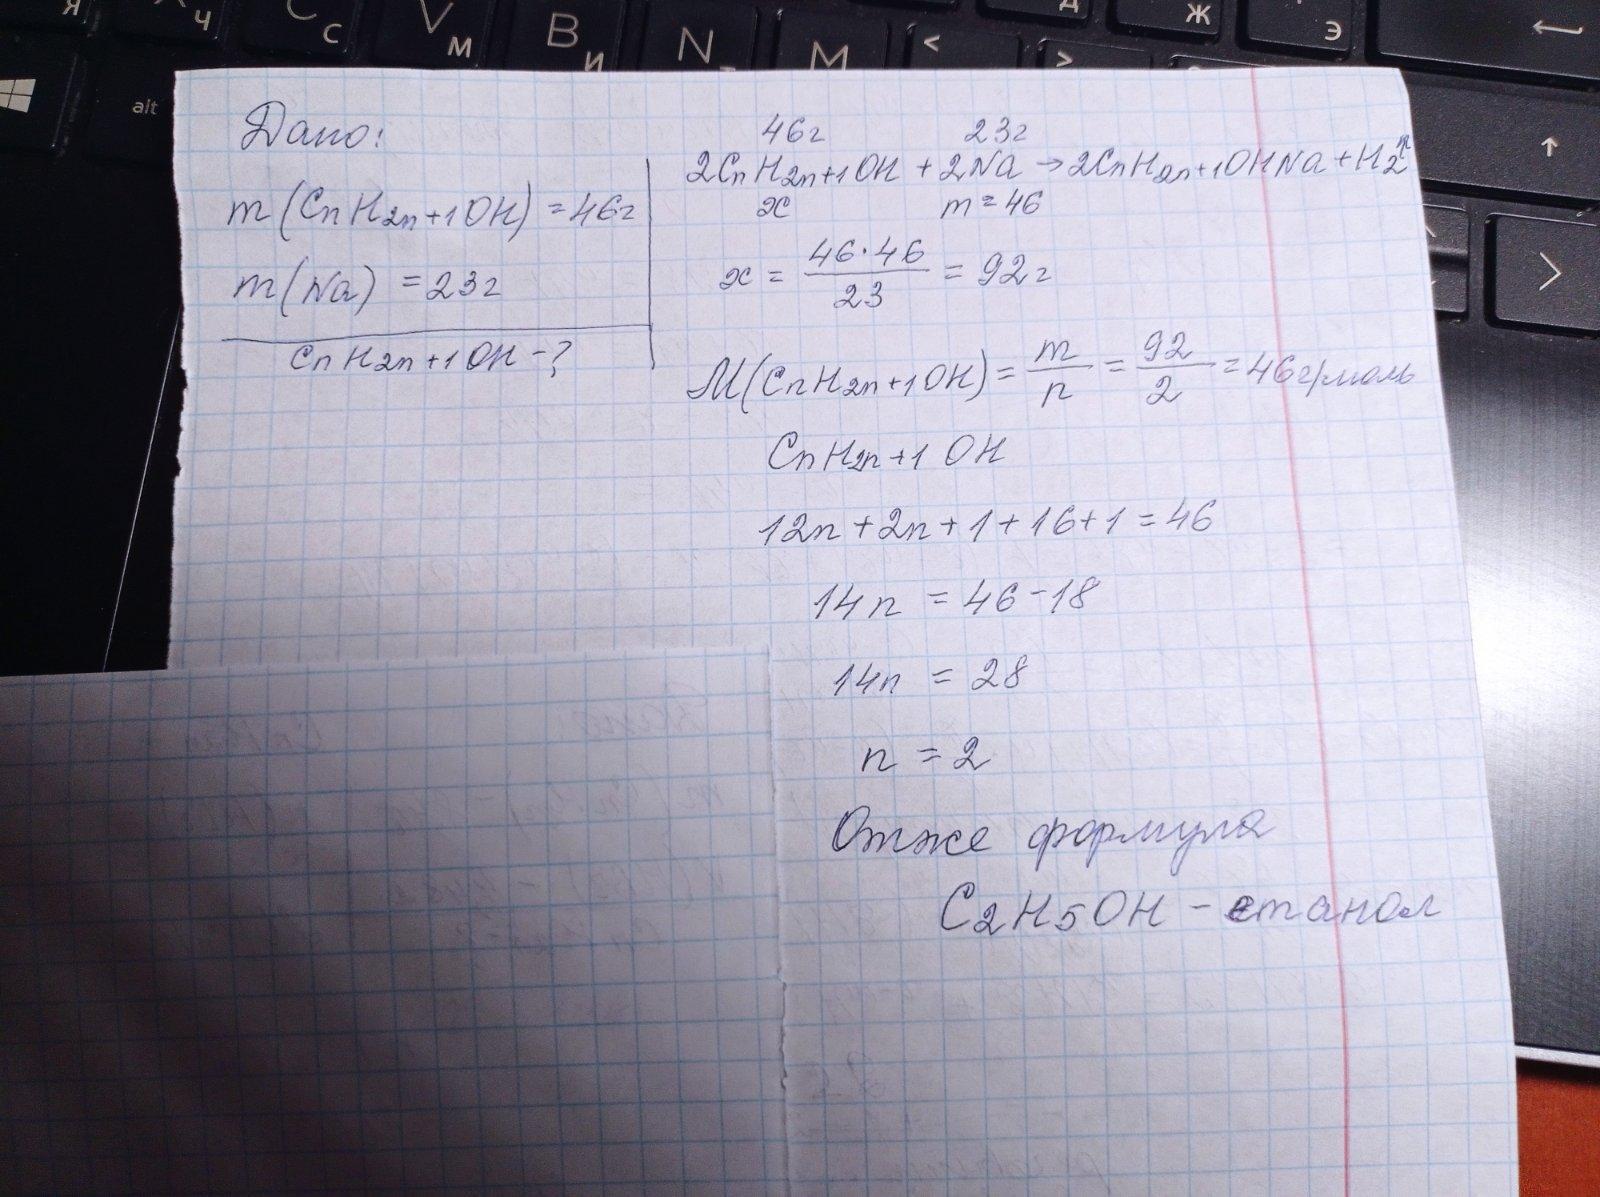 Я
Ч
C
С
V
М
B
И
N
M
<
>
Д
Ж
Э
alt
Дано:
m(CnH2n+1OH) = 46г
m(Na) = 23г
CnH2n+1OH - ?
46г 23г
2CnH2n+1OH + 2Na → 2CnH2n+1OHNa + H2↑
x m = 46
x = 46·46 / 23 = 92г
M(CnH2n+1OH) = m / n = 92 / 2 = 46г/моль
CnH2n+1OH
12n + 2n + 1 + 16 + 1 = 46
14n = 46 - 18
14n = 28
n = 2
Отже формула
C2H5OH - етанол